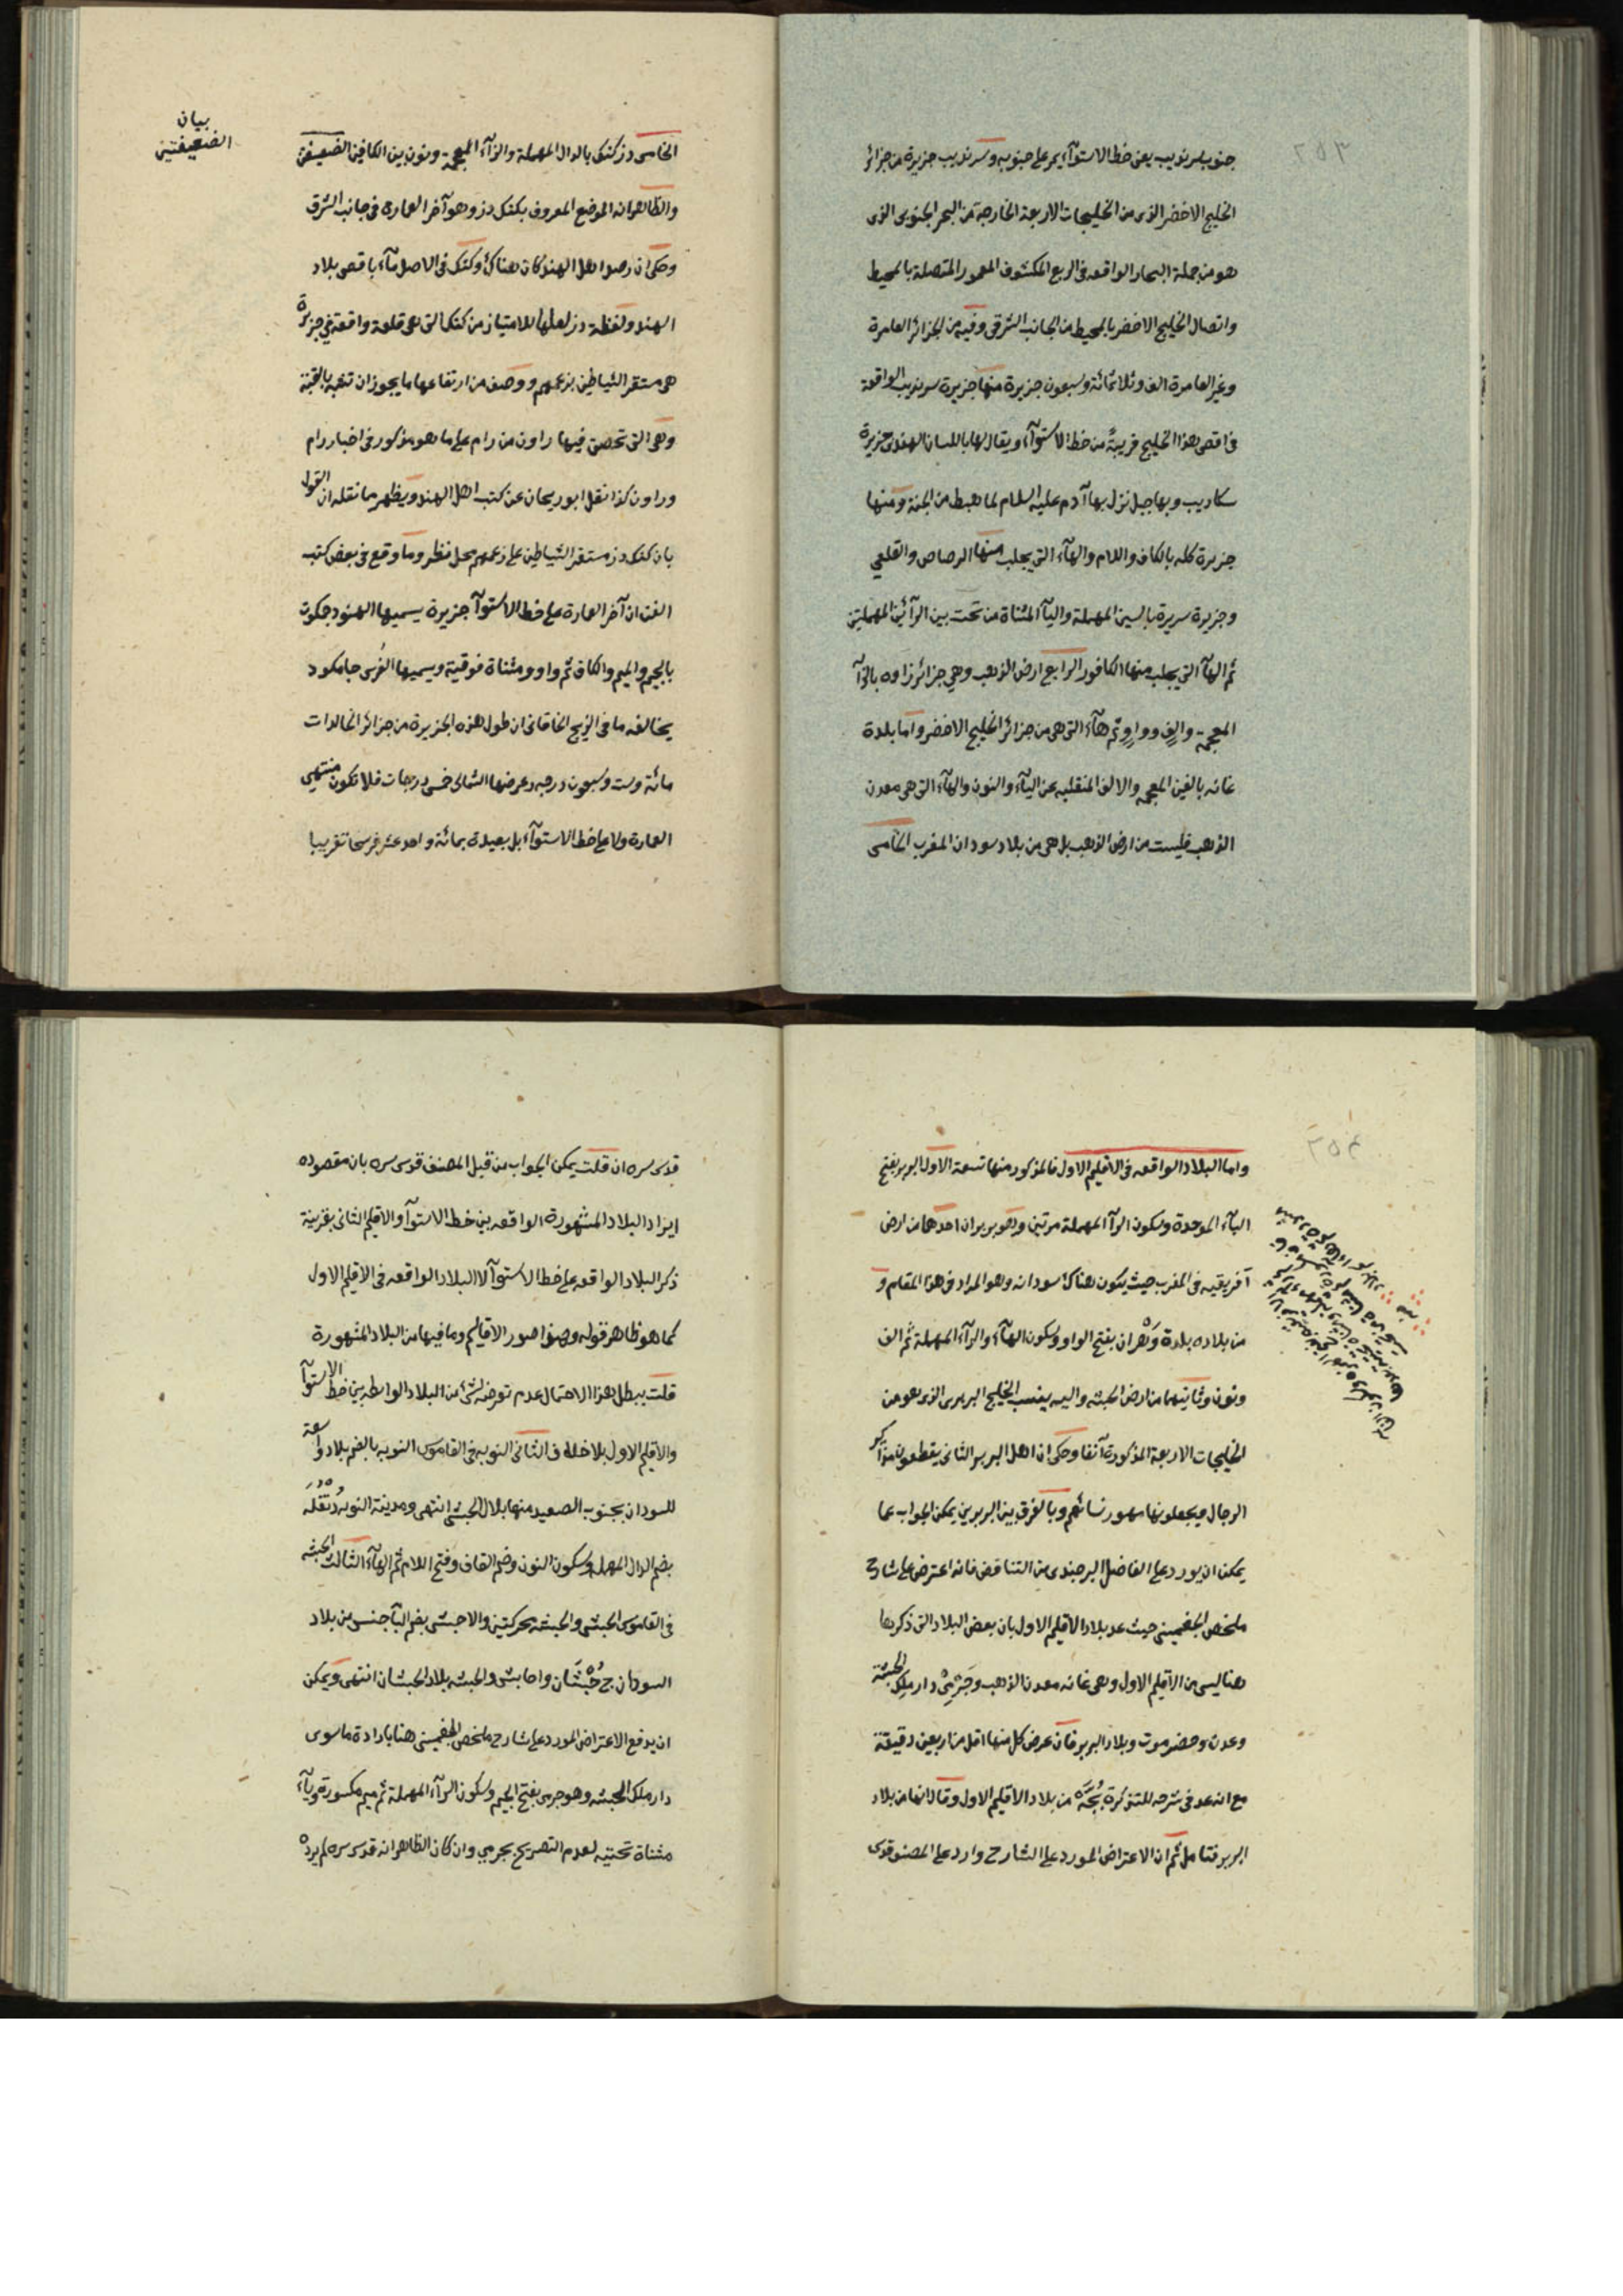 ٢٥٣
جنوب سرنديب يعنى خط الاستوآء يمر على جنوبه وسرنديب جزيرة من جزائر
الخليج الاخضر الذى من الخليجات الاربعة الخارجة من البحر الجنوبى الذى
هو من جملة البحار الواقعه فى الربع المكشوف المعمور المتصلة بالمحيط
واتصال الخليج الاخضر بالمحيط من الجانب الشرقى وفيه من الجزائر العامرة
وغير العامرة الف وثلاثمائة وسبعون جزيرة منها جزيرة سرنديب الواقعة
فى اقصى هذا الخليج قريبةً من خط الاستوآء ويقال لها باللسان الهندى جزيرة
سكاديب وبها جبل نزل بها آدم عليه السلام لما هبط من الجنة ومنها
جزيرة كله بالكاف واللام والهآء التى يجلب منها الرصاص والقلعى
وجزيرة سريرة بالسين المهملة واليآء المثناة من تحت بين الرآئين المهملتين
ثم الهآء التى يجلب منها الكافور الرابع ارض الذهب وهى جزائر زاوه بالزآء
المعجمة والفٍ وواوٍ ثم هآء التى هى من جزائر الخليج الاخضر واما بلدة
غانه بالغين المعجمه والالف المنقلبه عن اليآء والنون والهآء التى هى معدن
الذهب فليست من ارض الذهب بل هى من بلاد سودان المغرب الخامس
الخامس دز كنك بالدال المهملة والزآء المعجمة ونون بين الكافين الضعيفتين
بيان
الضعيفتين
والظاهر انه الموضع المعروف بكنك دز وهو آخر العمارة فى جانب الشرق
وحكى ان رصد اهل الهند كان هناك وكنك فى الاصل مآء باقصى بلاد
الهند ولفظة دز لعلها للامتياز من كنك التى هى قلعة واقعة فى جزيرة
هى مستقر الشياطين بزعمهم ووصف من ارتفاعها ما يجوز ان تشبه بالقبة
وهى التى تحصن فيها راون من رام على ما هو مذكور فى اخبار رام
وراون كذا نقل ابو ريحان عن كتب اهل الهند ويظهر مما نقله ان القول
بان كنك دز مستقر الشياطين على زعمهم محل نظر وما وقع فى بعض كتب
الفن ان آخر العمارة على خط الاستوآء جزيرة يسميها الهنود جمكوت
بالجيم والميم والكاف ثم واو ومثناة فوقية ويسميها الفُرس جامكود
يخالفه ما فى الزيج الخاقانى ان طول هذه الجزيرة من جزائر الخالدات
مائة وست وسبعون درجه وعرضها الشمالى خمس درجات فلا تكون منتهى
العمارة ولا على خط الاستوآء بل بعيدة بمائة واحد عشر فرسخا تقريبا
٢٥٤
واما البلاد الواقعه فى الاقليم الاول فالمذكور منها تسعة الاول البربر بفتح
البآء الموحدة وسكون الرآء المهملة مرتين وهو بربران احدها من ارض
آفريقيه فى المغرب حيث يكون هناك سودانه وهو المراد فى هذا المقام و
من بلاده بلدة وَهْران بفتح الواو وسكون الهآء والرآء المهملة ثم الف
ونون وثانيهما من ارض الحبشه واليه ينسب الخليج البربرى الذى هو من
الخليجات الاربعة المذكورة آنفا وحكى ان اهل البربر الثانى يقطعون مذاكير
الرجال ويجعلونها مهور نسائهم وبالفرق بين البربرين يمكن الجواب عما
يمكن ان يورد على الفاضل البرجندى من التناقض فانه اعترض على شارح
ملخص الجغمينى حيث عد بلاد الاقليم الاول بان بعض البلاد التى ذكرها
هنا ليس من الاقليم الاول وهى غانه معدن الذهب وجَرْمِىْ دار ملك الحبشة
وعدن وحضرموت وبلاد البربر فان عرض كل منها اقل من اربعين دقيقة
مع انه عد فى شرحه للتذكرة بُجَّه من بلاد الاقليم الاول وقال انها من بلاد
البربر فتامل ثم ان الاعتراض المورد على الشارح وارد على المصنف قدس
قدس سره ان قلت يمكن الجواب من قبل المصنف قدس سره بان مقصوده
ايراد البلاد المشهورة الواقعه بين خط الاستوآء والاقليم الثانى بقرينة
ذكر البلاد الواقعه على خط الاستوآء لا البلاد الواقعه فى الاقليم الاول
كما هو ظاهر قوله وصفوا صور الاقاليم وما فيها من البلاد المشهورة
قلت يبطل هذا الاحتمال عدم تعرضه لشئ من البلاد الواسطه بين خط الاستوآء
والاقليم الاول بلا خلاف الثانى النوبه فى القاموس النوبه بالضم بلاد واسعة
للسودان بجنوب الصعيد منها بلال الحبشى انتهى ومدينة النوبه دُنْقُلَه
بضم الدال المهمله وسكون النون وضم القاف وفتح اللام ثم الهآء الثالث الحبشه
فى القاموس الحبش والحبشه محركتين والاحبش بضم البآء جنس من بلاد
السودان ج حُبْشَان واحابش والحبشه بلاد الحبشان انتهى ويمكن
ان يدفع الاعتراض المورد على شارح ملخص الجغمينى هنا بارادة ما سوى
دار ملك الحبشه وهو جرمى بفتح الجيم وسكون الرآء المهملة ثم ميم مكسورة ويآء
مثناة تحتيه لعدم التصريح بجرمى وان كان الظاهر انه قدس سره لم يرده